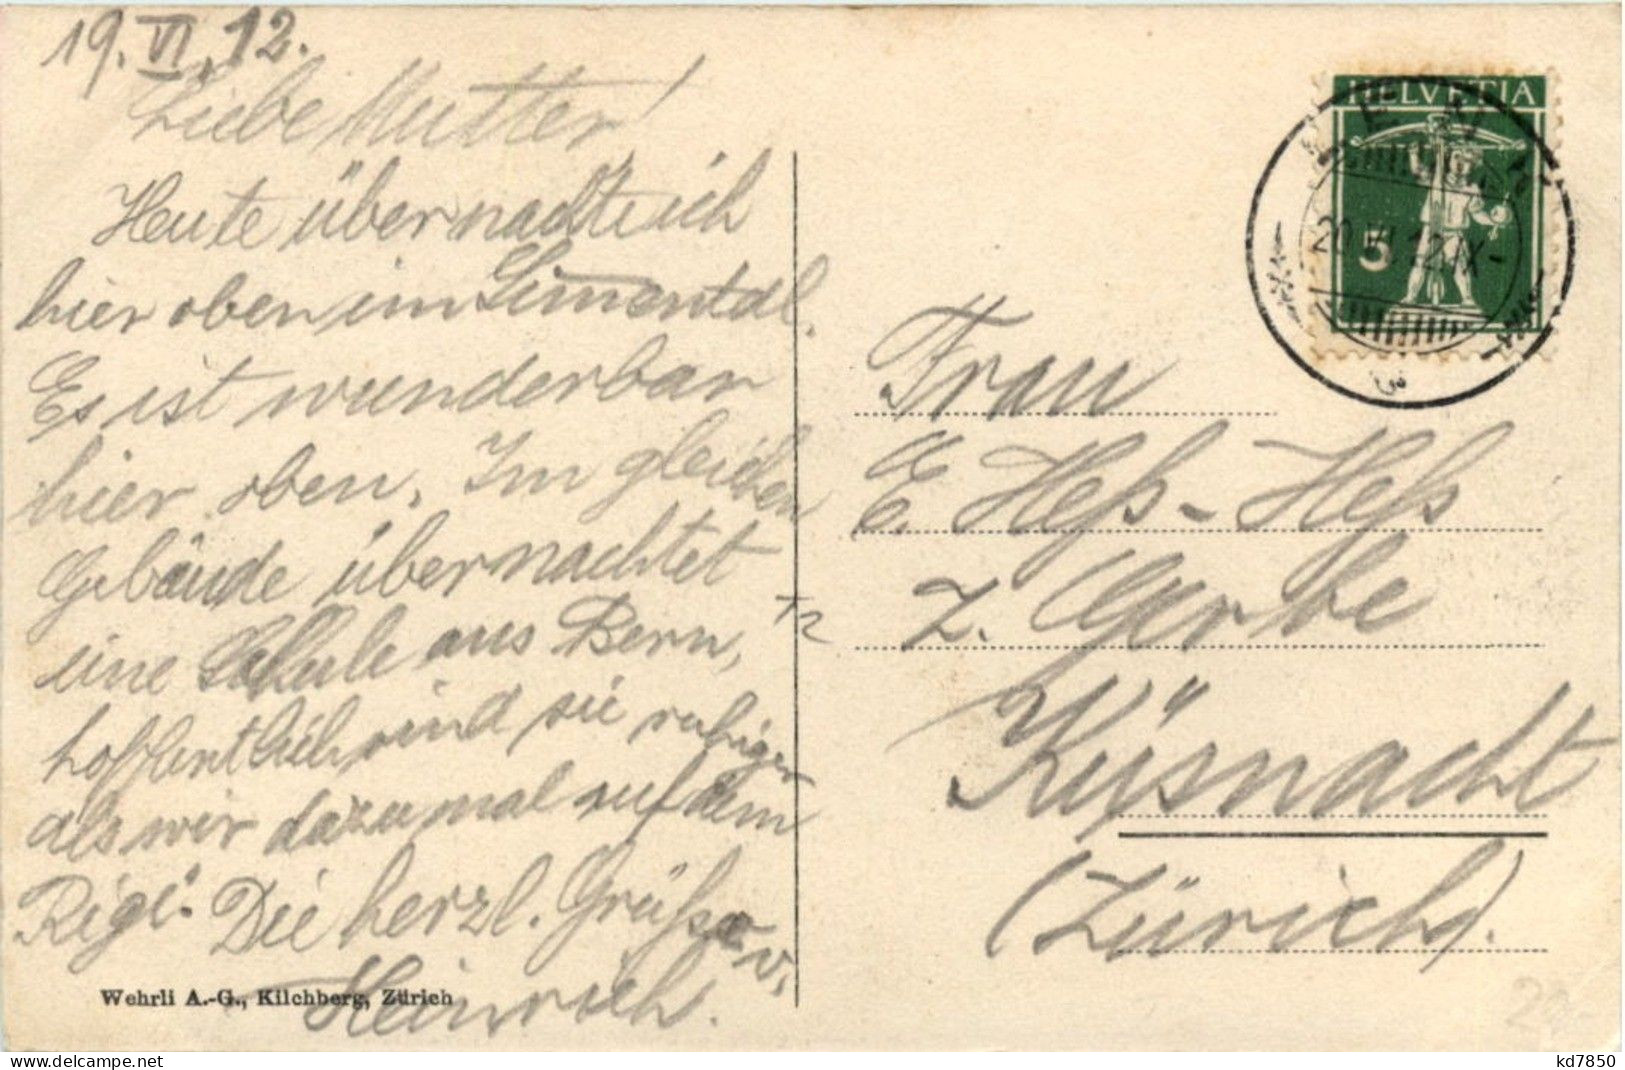 19. VI. 12.
Liebe Mutter!
Heute übernachte ich
hier oben im Simental.
Es ist wunderbar
hier oben. Im gleichen
Gebäude übernachtet
eine Schule aus Bern,
hoffentlich sind sie ruhiger
als wir dazumal auf dem
Rigi. Die herzl. Grüsse v.
Heinrich.
Wehrli A.-G., Kilchberg, Zürich
HELVETIA
5
20.VI.12.IX-
Frau
E. Heß-Heß
z. Gerbe
Küsnacht
(Zürich).
delcampe.net
kd7850